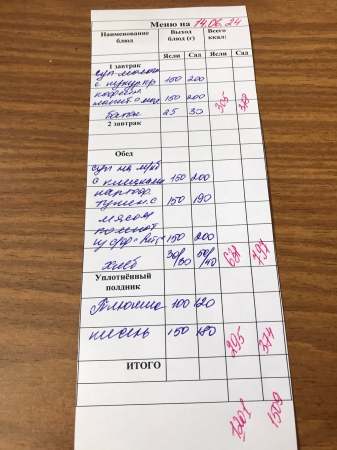 Меню на 14.06.24
Наименование блюд Выход блюд (г) Всего ккал:
Ясли Сад Ясли Сад
1 завтрак
суп молоч
с кукур кр 150 200
напиток 150 200 305 378
батон 25 30
2 завтрак
Обед
суп на м/об
с клецками 150 200
картоф.
тушен. с 150 190
мясом
компот
из 150 200
хлеб 30/30 50/40 737
Уплотнённый полдник
100 120
кисель 150 180 295 374
ИТОГО
1201 1509